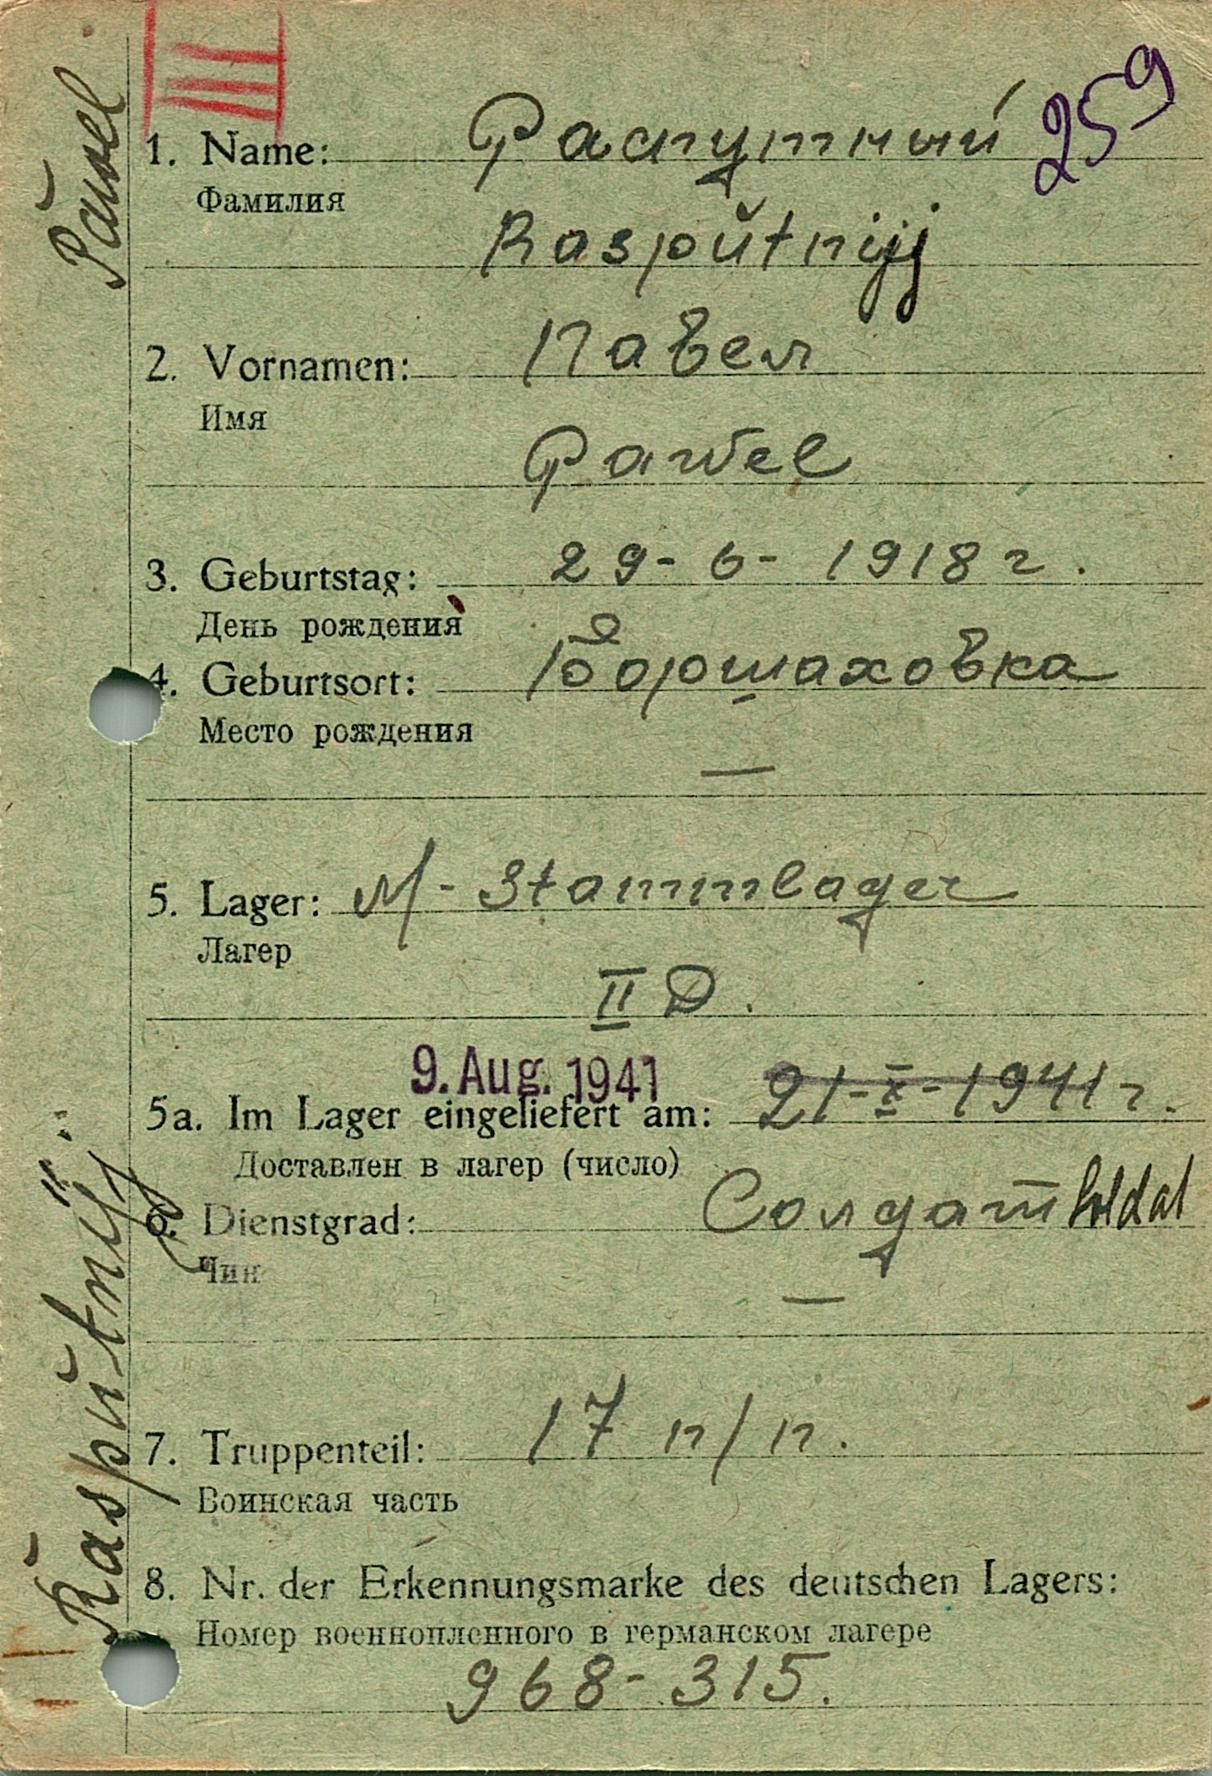 III
259
1. Name: Распутный
Фамилия
Raspŭtnijj
2. Vornamen: Павел
Имя
Pawel
3. Geburtstag: 29-6-1918 г.
День рождения
4. Geburtsort: Боршаховка
Место рождения
—
5. Lager: M-Stammlager
Лагер
II D.
9. Aug. 1941
5a. Im Lager eingeliefert am: 21-X-1941 г.
Доставлен в лагер (число)
6. Dienstgrad: Солдат Soldat
Чин
—
7. Truppenteil: 17 п/п.
Воинская часть
8. Nr. der Erkennungsmarke des deutschen Lagers:
Номер военнопленного в германском лагере
968-315.
Raspŭtnijj Pawel